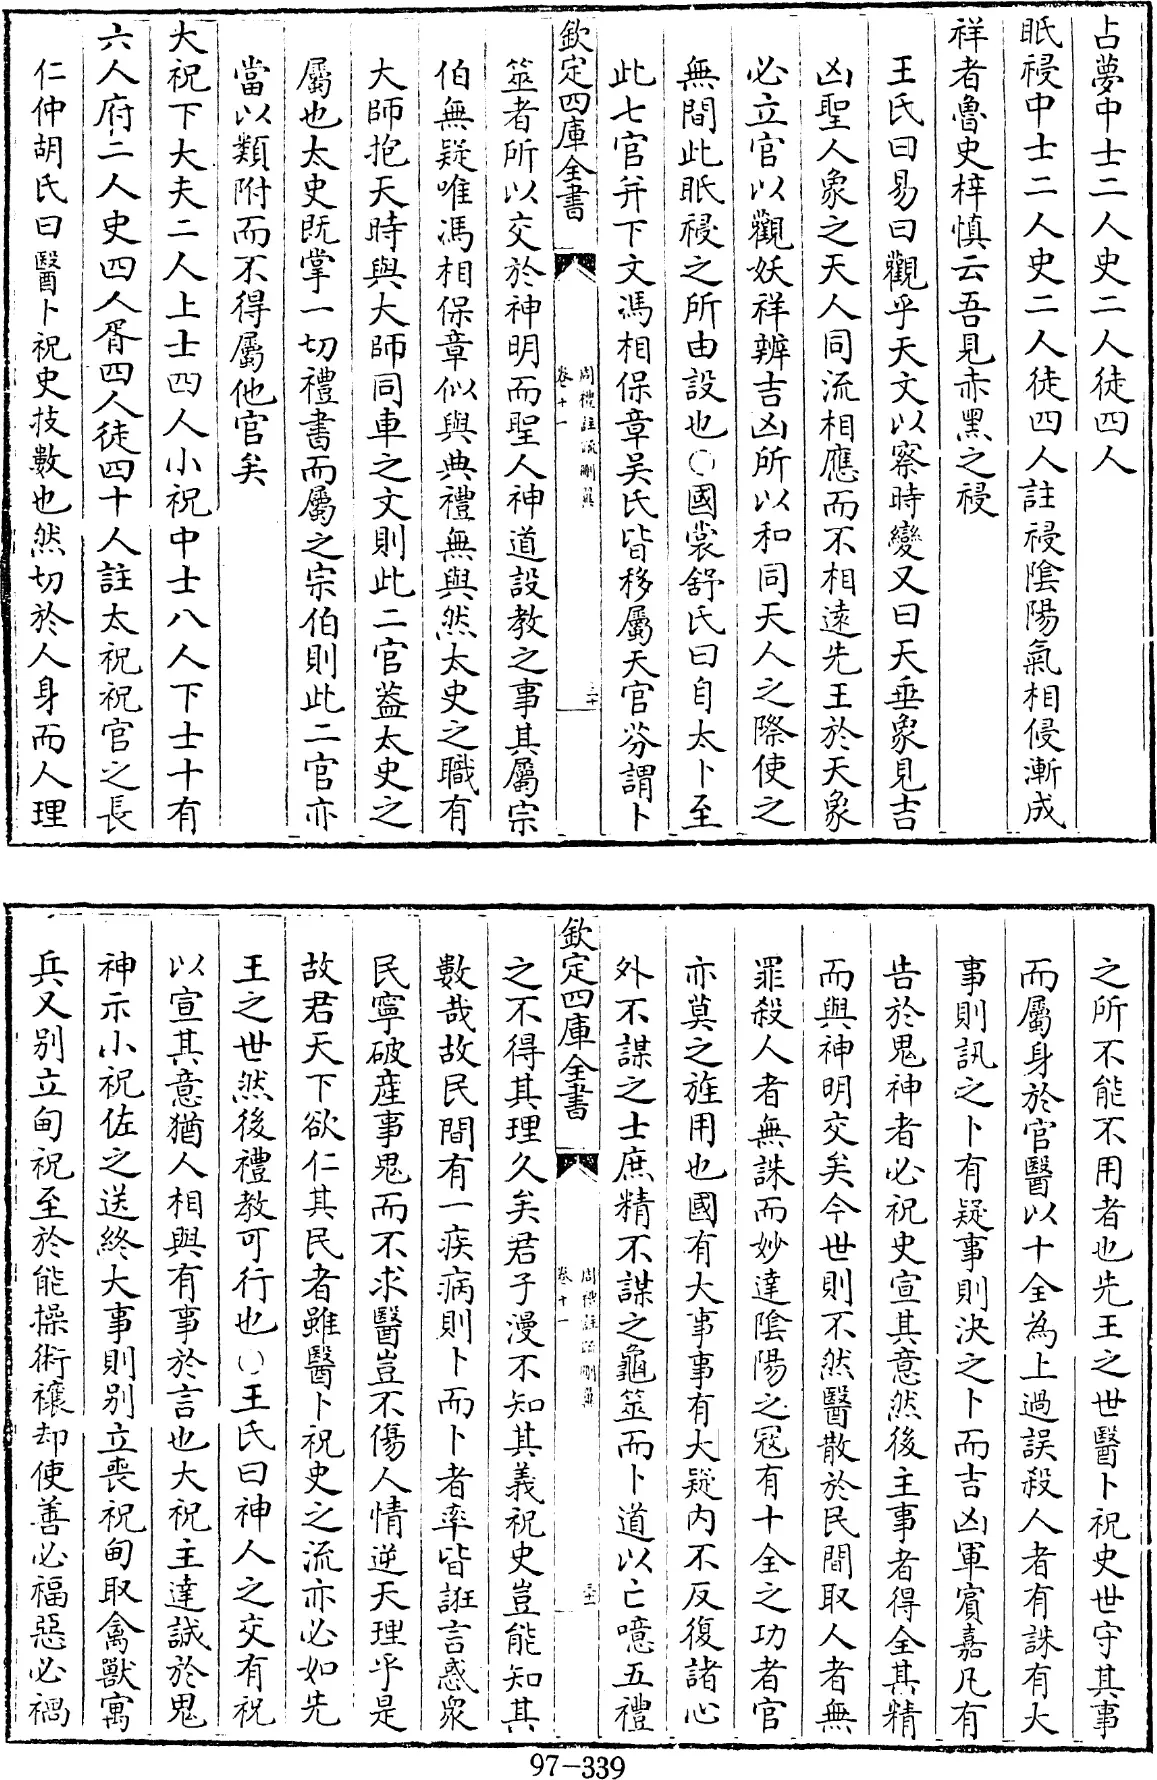 占夢中士二人史二人徒四人
眡祲中士二人史二人徒四人註祲隂陽氣相侵漸成
祥者魯史梓慎云吾見赤黑之祲
王氏曰易曰觀乎天文以察時變又曰天垂象見吉
凶聖人象之天人同流相應而不相遠先王於天象
必立官以觀妖祥辨吉凶所以和同天人之際使之
無間此眡祲之所由設也○國裳舒氏曰自太卜至
此七官并下文馮相保章吳氏皆移屬天官芬謂卜
欽定四庫全書
周禮註疏刪翼
卷十一
三十
筮者所以交於神明而聖人神道設教之事其屬宗
伯無疑唯馮相保章似與典禮無與然太史之職有
大師抱天時與大師同車之文則此二官葢太史之
屬也太史既掌一切禮書而屬之宗伯則此二官亦
當以類附而不得屬他官矣
大祝下大夫二人上士四人小祝中士八人下士十有
六人府二人史四人胥四人徒四十人註太祝祝官之長
仁仲胡氏曰醫卜祝史技數也然切於人身而人理
之所不能不用者也先王之世醫卜祝史世守其事
而屬身於官醫以十全為上過誤殺人者有誅有大
事則訊之卜有疑事則決之卜而吉凶軍賓嘉凡有
告於鬼神者必祝史宣其意然後主事者得全其精
而與神明交矣今世則不然醫散於民間取人者無
罪殺人者無誅而妙達隂陽之宼有十全之功者官
亦莫之旌用也國有大事事有大疑内不反復諸心
外不謀之士庶精不謀之龜筮而卜道以亡噫五禮
欽定四庫全書
周禮註疏刪翼
卷十一
三十一
之不得其理久矣君子漫不知其義祝史豈能知其
數哉故民間有一疾病則卜而卜者率皆誑言惑衆
民寧破產事鬼而不求醫豈不傷人情逆天理乎是
故君天下欲仁其民者雖醫卜祝史之流亦必如先
王之世然後禮教可行也○王氏曰神人之交有祝
以宣其意猶人相與有事於言也大祝主達誠於鬼
神示小祝佐之送終大事則別立喪祝甸取禽獸寓
兵又別立甸祝至於能操術禳却使善必福惡必禍
97-339